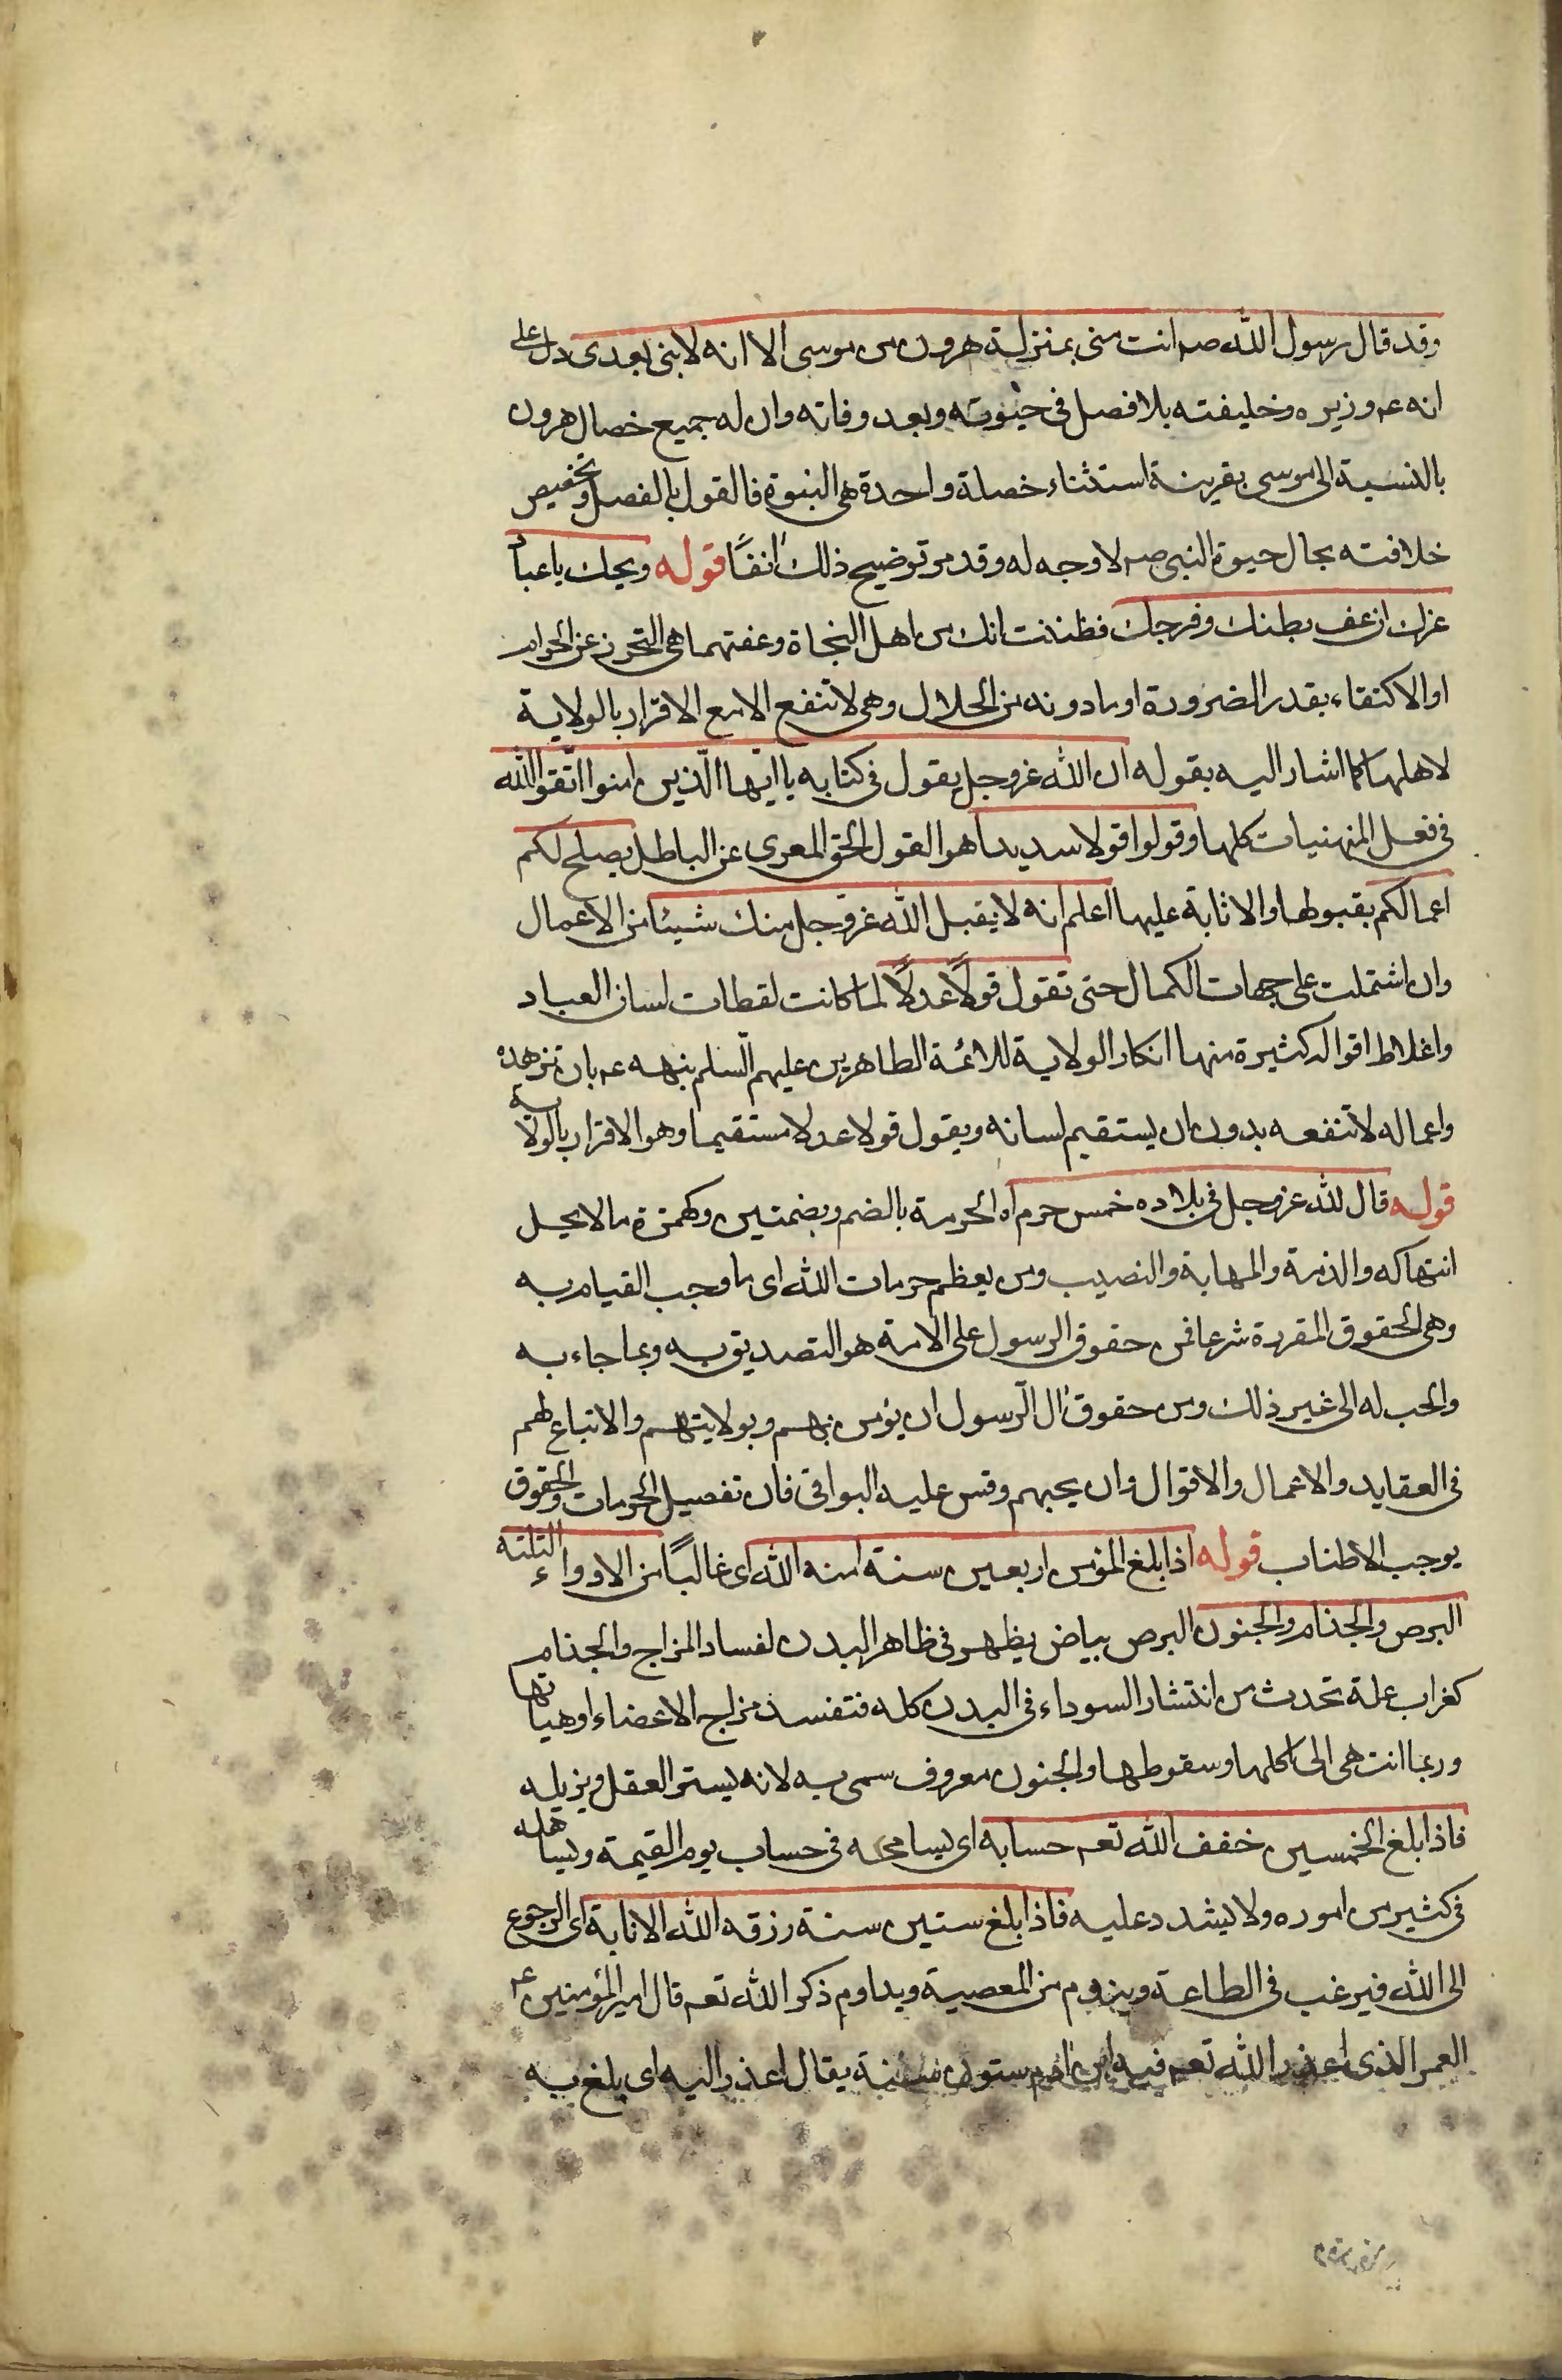 وقد قال رسول الله صم انت منى بمنزلة هرون من موسى الا انه لا بنى بعدى دل على
انه عم وزيره وخليفته بلا فصل فى حيوته وبعد وفاته وان له جميع خصال هرون
بالنسبة الى موسى بقرينة استثناء خصلة واحدة هى النبوة فالقول بالفصل وتخصيص
خلافته بحال حيوة النبى صم لا وجه له وقد مر توضيح ذلك انفًا قوله ويحك يا عباد
غرك ان عف بطنك وفرجك فظننت انك من اهل النجاة وعفتهما هى التحرز عن الحرام
او الاكتفاء بقدر الضرورة او ما دونه من الحلال وهى لا تنفع الا مع الاقرار بالولاية
لاهلها كما اشار اليه بقوله ان الله عز وجل يقول فى كتابه يا ايّها الّذين امنوا اتّقوا الله
فى فعل المنهيات كلها وقولوا قولا سديدا هو القول الحق المعرى عن الباطل يصلح لكم
اعمالكم بقبولها والاثابة عليها اعلم انه لا يقبل الله عز وجل منك شيئا من الاعمال
وان اشتملت على جهات الكمال حتى تقول قولًا عدلًا لما كانت لقطات لسان العباد
واغلاط اقواله كثيرة منها انكار الولاية للائمة الطاهرين عليهم السلم نبهه عم بان تزهده
واعماله لا تنفعه بدون ان يستقيم لسانه ويقول قولا عدلا مستقيما وهو الاقرار بالولاية
قوله قال لله عز وجل فى بلاده خمس حرم اه الحرمة بالضم وبضمتين وكهمزة ما لا يحل
انتهاكه والذمة والمهابة والنصيب ومن يعظم حرمات الله اى ما وجب القيام به
وهى الحقوق المقررة شرعا فمن حقوق الرسول على الامة هو التصديق به وبما جاء به
والحب له الى غير ذلك ومن حقوق ال الرسول ان يؤمن بهم وبولايتهم والاتباع لهم
فى العقايد والاعمال والاقوال وان يحبهم وقس عليه البواقى فان تفصيل الحرمات والحقوق
يوجب الاطناب قوله اذا بلغ المؤمن اربعين سنة امنه الله اى غالبًا من الادواء الثلثة
البرص والجذام والجنون البرص بياض يظهر فى ظاهر البدن لفساد المزاج والجذام
كغراب علة تحدث من انتشار السوداء فى البدن كله فتفسد مزاج الاعضاء او هياتها
وربما انتهى الى تاكلها وسقوطها والجنون معروف سمى به لانه يستر العقل ويزيله
فاذا بلغ الخمسين خفف الله تعم حسابه اى يسامحه فى حساب يوم القيمة ويساهله
فى كثير من اموره ولا يشدد عليه فاذا بلغ ستين سنة رزقه الله الانابة اى الرجوع
الى الله فيرغب فى الطاعة وينزوم من المعصية ويداوم ذكر الله تعم قال امير المؤمنين عم
العمر الذى اعذر الله تعم فيه ابن ادم ستون سنة يقال اعذر اليه اى بلغ به